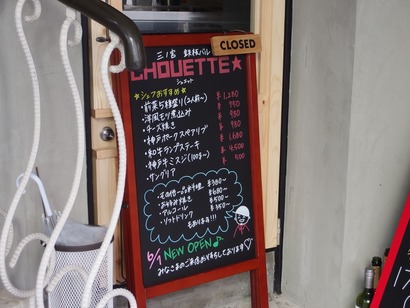 CLOSED
三ノ宮 鉄板バル
CHOUETTE★
シュエット
☆シェフおすすめ☆
・前菜5種盛り(2人前〜) ¥1,280
・洋風モツ煮込み ¥980
・チーズ焼き ¥980
・神戸ポークスペアリブ ¥1,680
・和牛ランプステーキ
・神戸牛ミスジ(100g〜)
・サングリア
・その他一品料理 ¥380〜
・お好み焼き ¥680〜
・アルコール ¥500〜
・ソフトドリンク ¥350〜
もあります!!!
6/1 NEW OPEN♪
みなさまのご来店お待ちしております♡